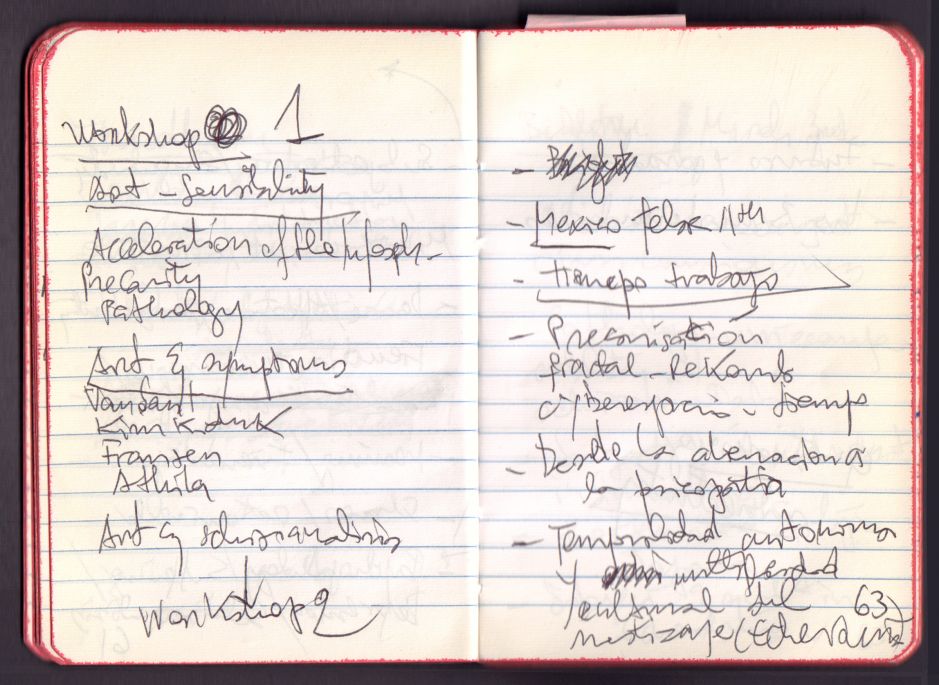 Workshop 1
Art - Sensibility
Acceleration of the Infosph-
Precarity
Pathology
Art & symptoms
Van Sant
Kim Ki Duk
Franzen
Athila
Art & schizoanalisis
Workshop 2
-
- Mexico felix 11th
- Tiempo trabajo
- Precarisación
fractal - Rekomb
cyberespacio - tiempo
- Desde la alienacion a
la psicopatia
- Temporalidad autonoma
y
cultural del 63)
mestizaje (Echevarria